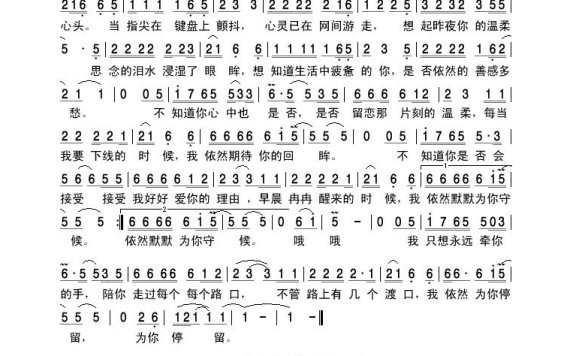 216 65 | 1 1 1 1 65 | 2 3 3 | 2 2 2 2 216 | 1 2 2 5 | 3 2 3 2 3 3 2 |
心头。 当 指尖在 键盘上 颤抖， 心灵已在 网间游 走， 想 起昨夜你 的温柔
5 · 5 | 2 2 2 2 2 2 3 | 21 6 6 | 1 1 1 1 1 1 65 | 2 2 2 2 1 2 | 2 2 2 2 162 |
思 念的泪水 浸湿了 眼 眸，想 知道生活中疲惫 的 你，是 否依然的 善感多
21 1 | 0 0 5 | 1 7 6 5 533 | 6 · 5 5 3 5 | 6 6 6 5 6 5 3 | 2 2 2 2 1 2 |
愁。 不 知道你心 中也 是 否， 是否 留恋那 片刻的 温 柔，每当
2 2 2 2 2 1 | 21 6 6 | 6 6 6 6 6 1 5 | 5 5 5 | 0 0 5 | 1 7 6 5 5 · 3 |
我要 下线的 时 候，我 依然期待 你的回 眸。 不 知道你是 否 会
5 6 6 5 5 | 6 6 6 6 6 1 2 | 2 3 3 1 1 | 2 2 2 2 2 2 1 | 21 6 6 | 6 6 6 6 6 1 5 |
接受 接受 我好好 爱你的 理由 ，早晨 冉冉 醒来的 时 候，我 依然默默 为你守
5 5 5 :‖ 6 6 6 6 6 1 5 | 5 5 5 | 0 6 1 | 5 − | 0 0 5 | 1 7 6 5 503 |
候。 依然默默 为你守 候。 哦 哦 我 只想永远 牵你
6 · 5 5 3 5 | 6 6 6 6 6 1 2 | 2 3 3 1 1 | 2 2 2 2 2 · 1 | 21 6 6 | 6 6 · 6 1 5 |
的手， 陪你 走过每个 每个路 口， 不管 路上有 几 个 渡 口，我 依然 为你停
5 5 5 | 0 2 6 | 121 1 | 1 − | 1 − ‖
留， 为你 停 留。